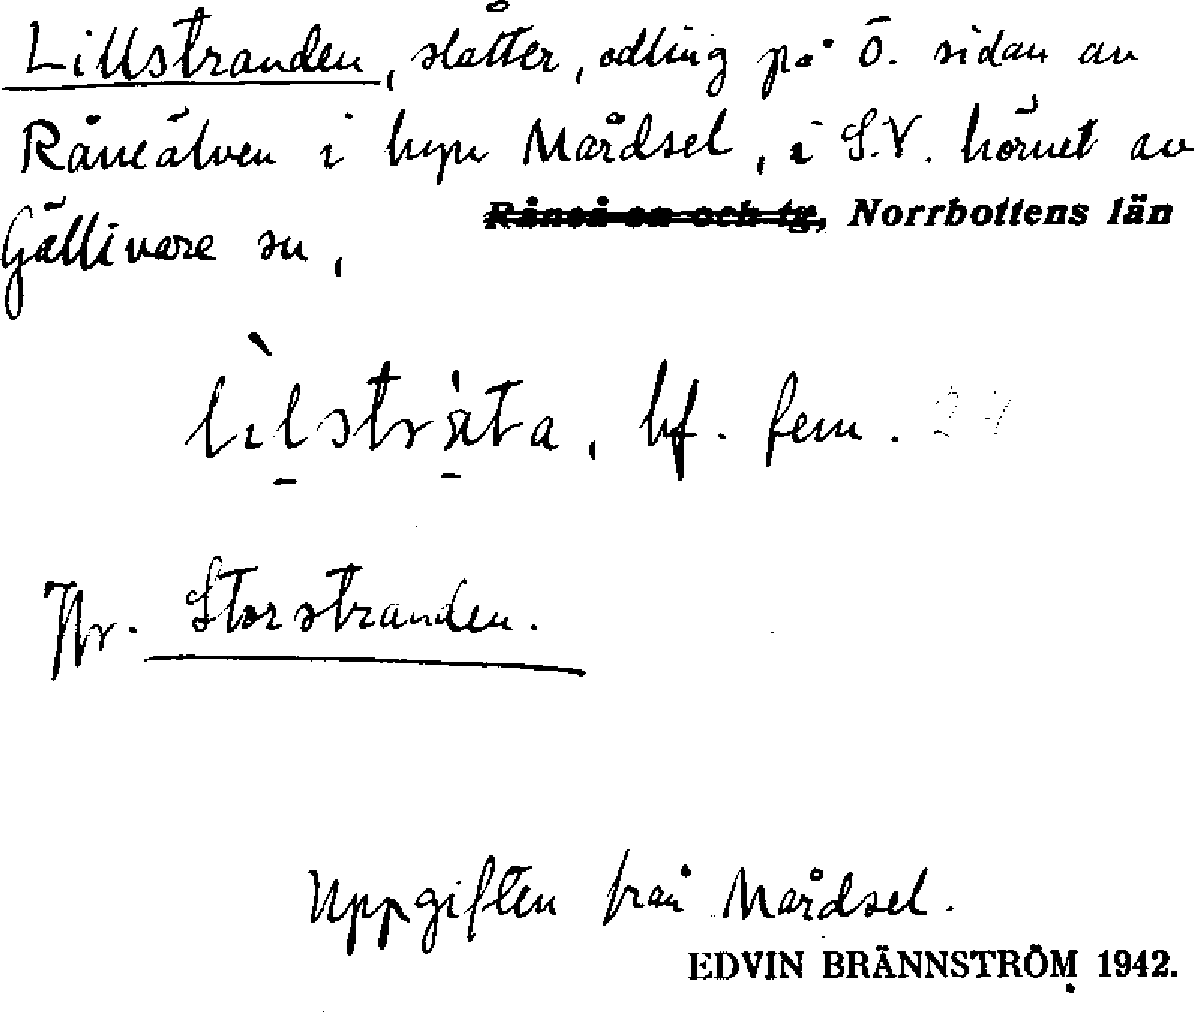 Lillstranden, slåtter, odling på Ö. sidan av
Råneälven i byn Mårdsel, i S.V. hörnet av
Råneå sn och tg, Norrbottens län
Gällivare sn,
bf. fem.
Jfr. Storstranden.
Uppgiften från Mårdsel.
EDVIN BRÄNNSTRÖM 1942.